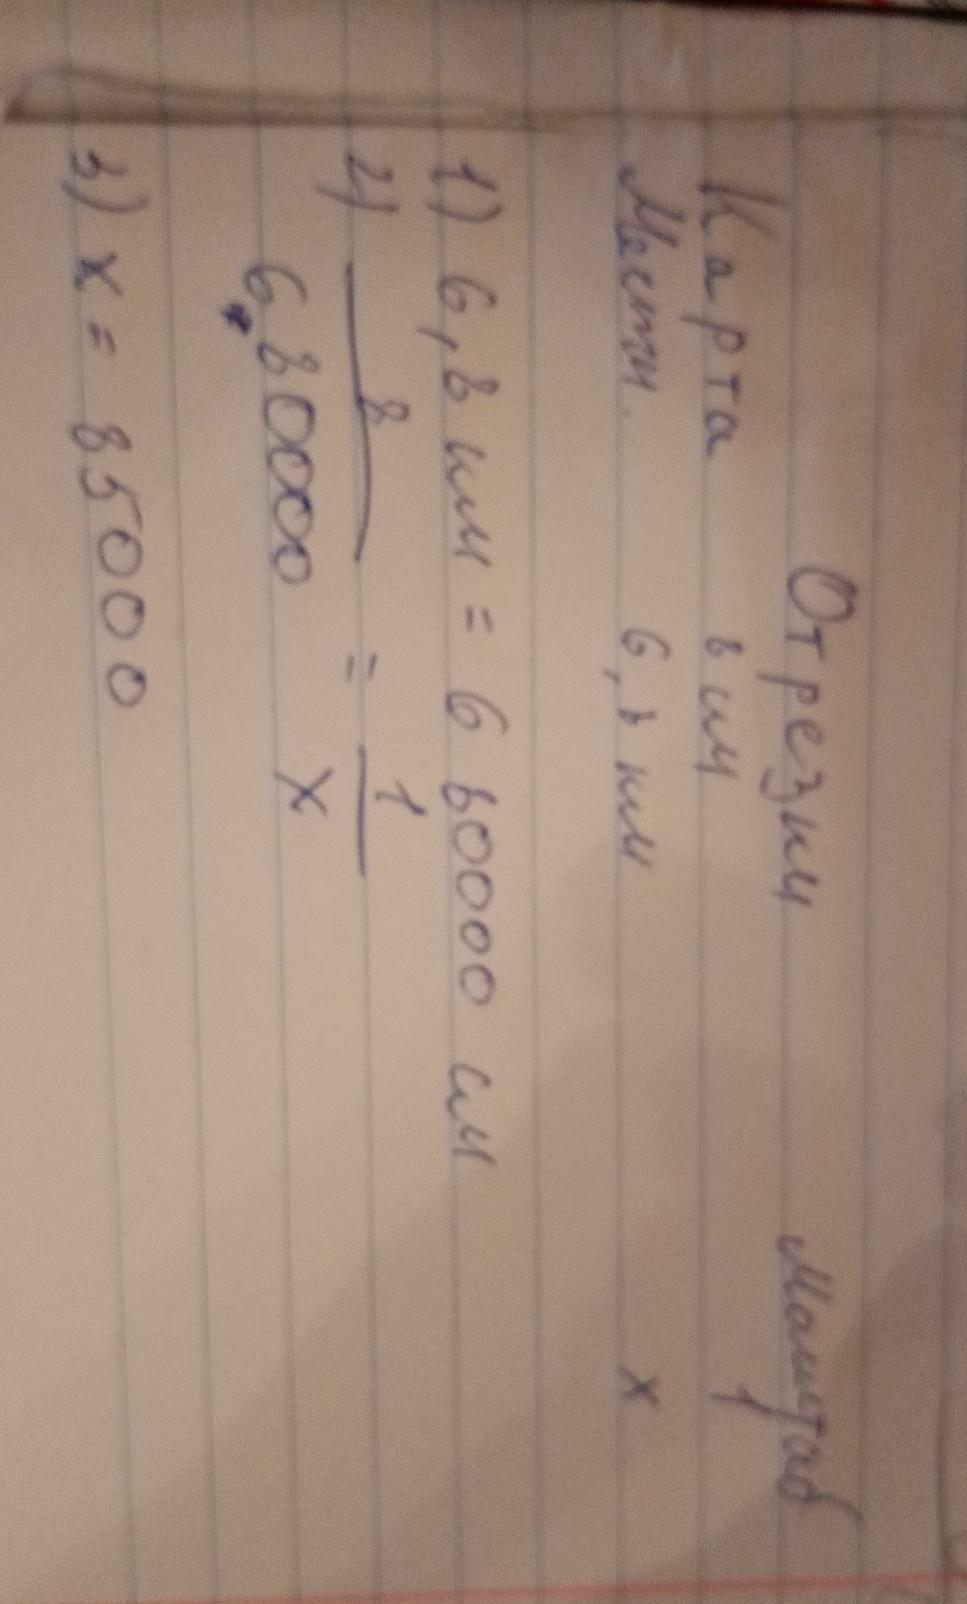 Отрезки Масштаб
Карта 8 см 1
Местн. 6,8 км x
1) 6,8 км = 680000 см
2) 8/680000 = 1/x
3) x = 85000